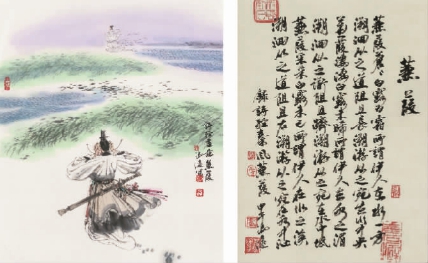 蒹葭
蒹葭蒼蒼白露為霜所謂伊人在水一方
溯洄從之道阻且長溯游從之宛在水中央
蒹葭萋萋白露未晞所謂伊人在水之湄
溯洄從之道阻且躋溯游從之宛在水中坻
蒹葭采采白露未已所謂伊人在水之涘
溯洄從之道阻且右溯游從之宛在水中沚
錄詩經秦風蒹葭 甲午
蒹葭